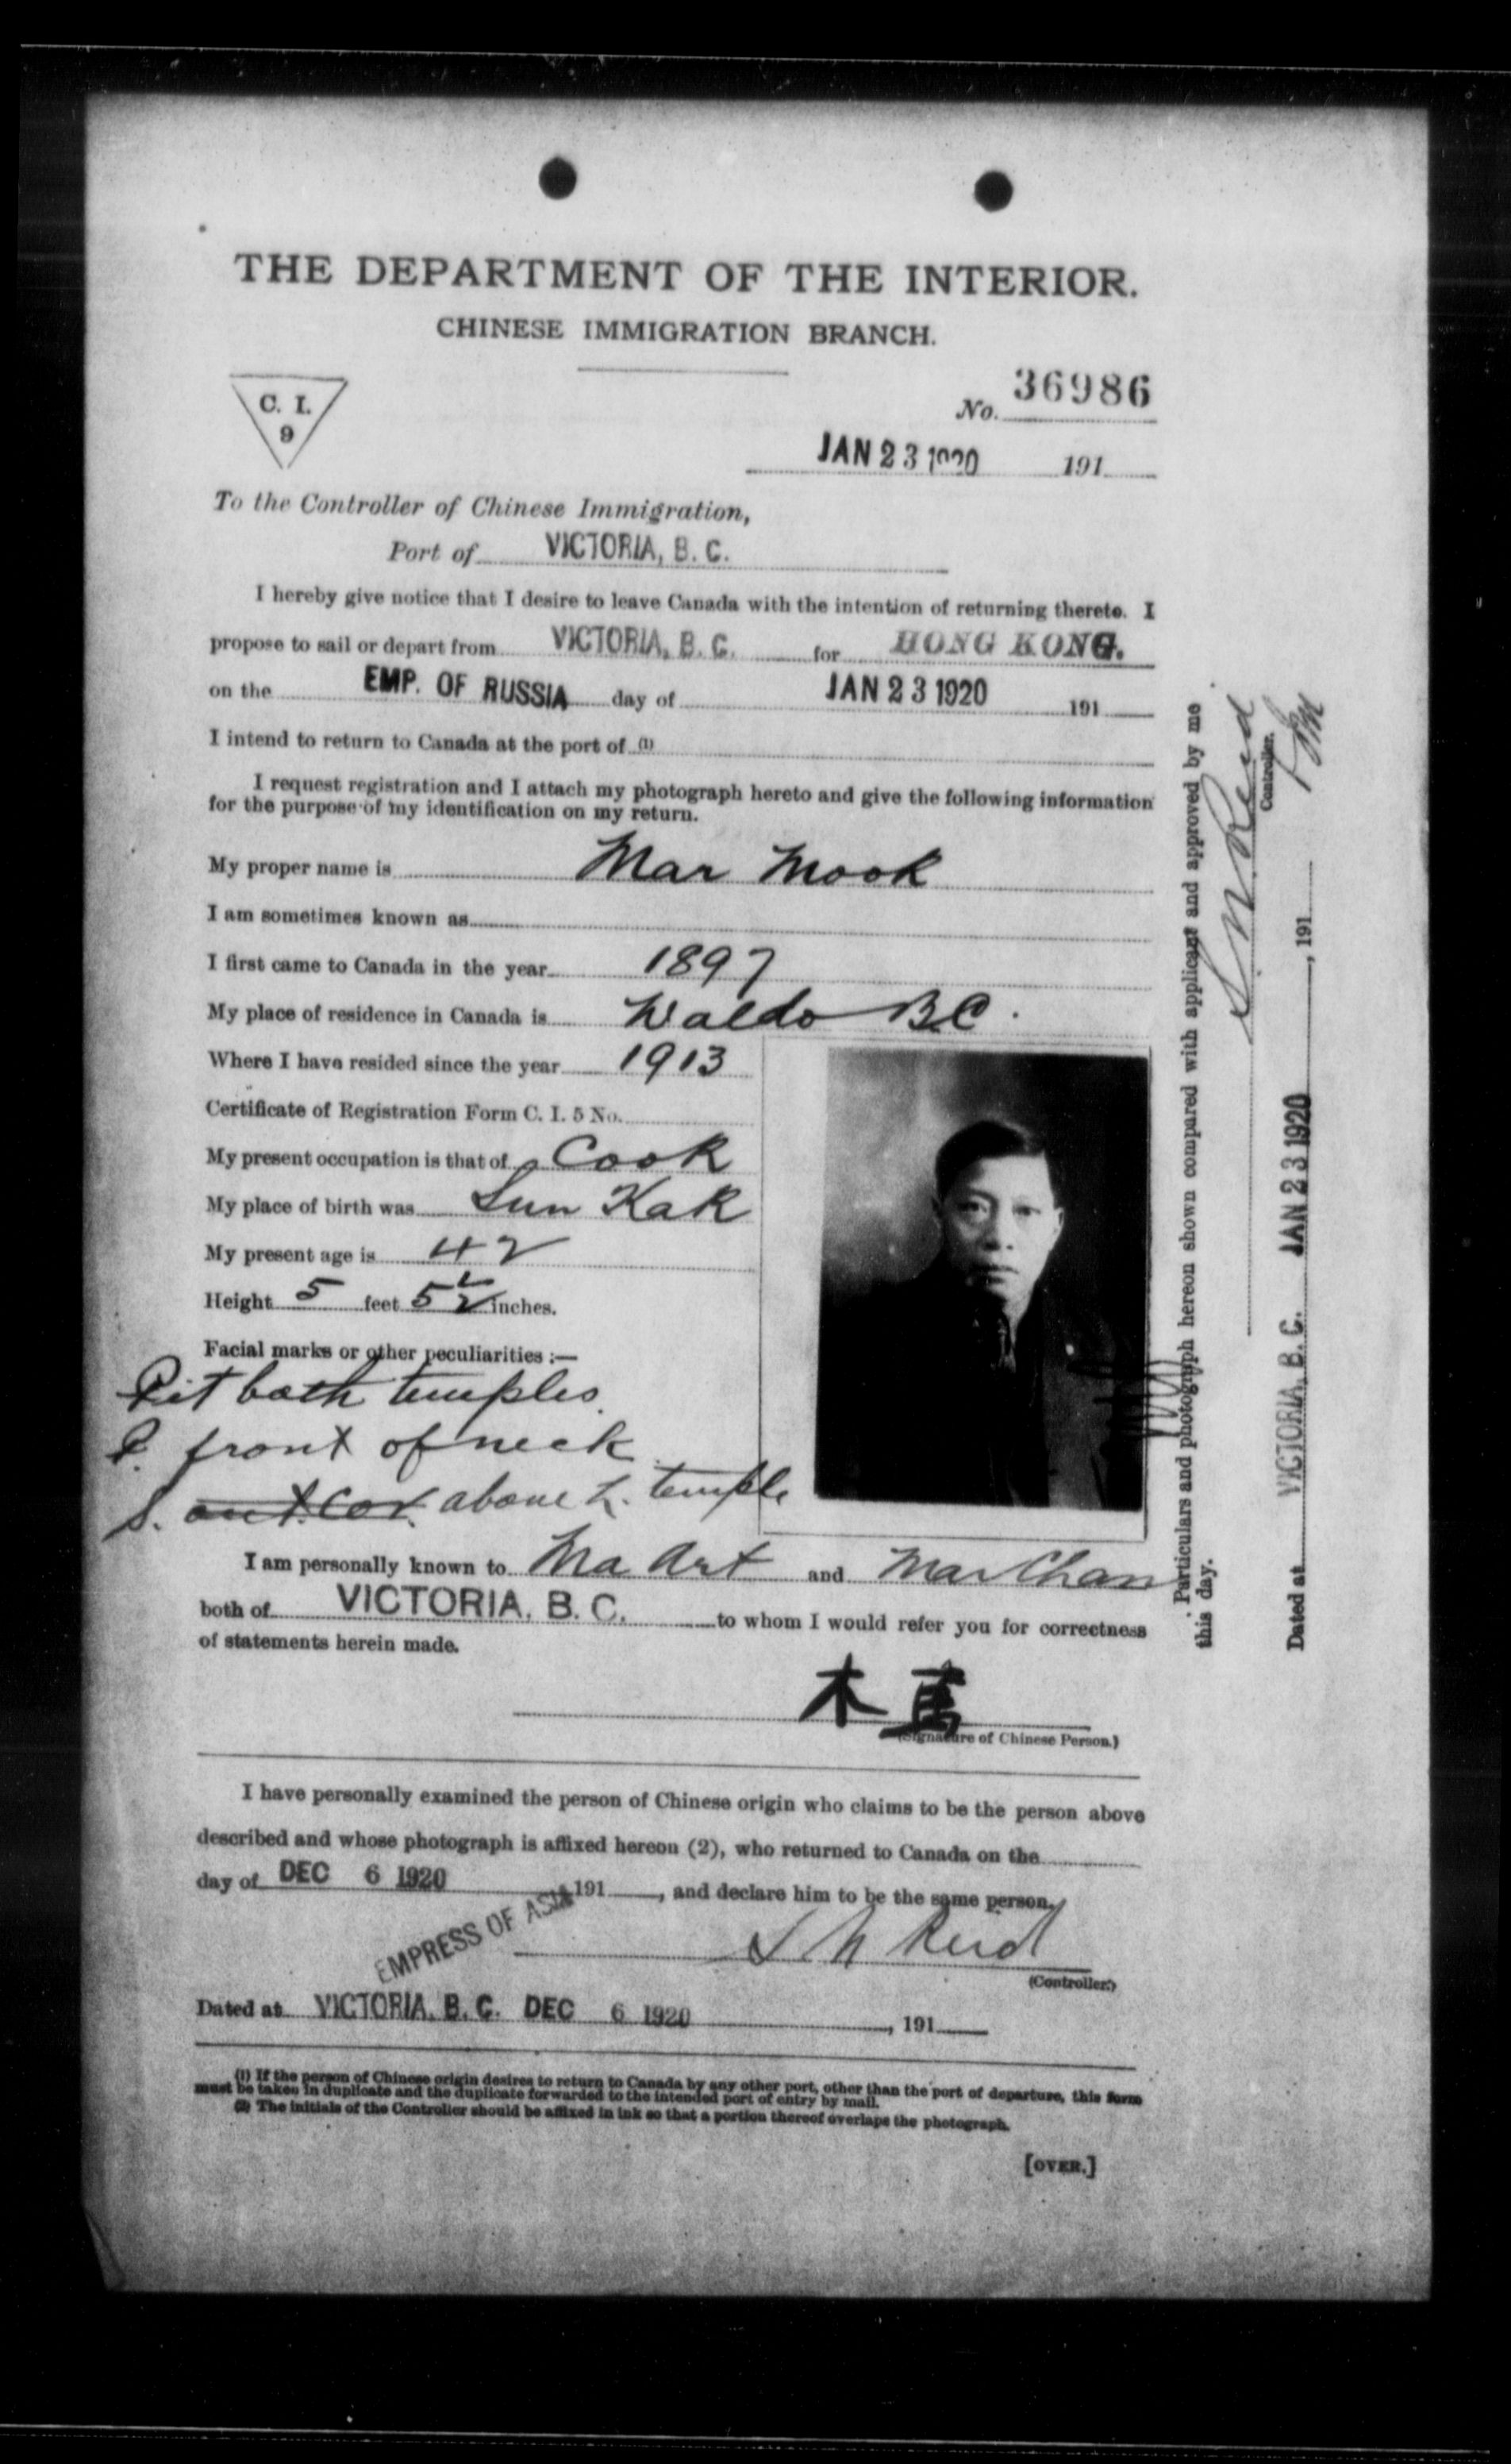 THE DEPARTMENT OF THE INTERIOR.
CHINESE IMMIGRATION BRANCH.
C. I.
9
No. 36986
JAN 23 1920 191
To the Controller of Chinese Immigration,
Port of VICTORIA, B. C.
I hereby give notice that I desire to leave Canada with the intention of returning thereto. I
propose to sail or depart from VICTORIA, B. C. for HONG KONG.
on the EMP. OF RUSSIA day of JAN 23 1920 191
I intend to return to Canada at the port of (1)
I request registration and I attach my photograph hereto and give the following information
for the purpose of my identification on my return.
My proper name is Mar Mook
I am sometimes known as
I first came to Canada in the year 1897
My place of residence in Canada is Waldo BC.
Where I have resided since the year 1913
Certificate of Registration Form C. I. 5 No.
My present occupation is that of Cook
My place of birth was Sun Kak
My present age is 42
Height 5 feet 5½ inches.
Facial marks or other peculiarities :—
Pit both temples.
P. front of neck
S. above L. temple
I am personally known to Ma Art and Mar Chan
both of VICTORIA, B. C. to whom I would refer you for correctness
of statements herein made.
木馬
(Signature of Chinese Person.)
I have personally examined the person of Chinese origin who claims to be the person above
described and whose photograph is affixed hereon (2), who returned to Canada on the
day of DEC 6 1920 191, and declare him to be the same person.
EMPRESS OF ASIA
S N Reid
(Controller.)
Dated at VICTORIA, B. C. DEC 6 1920, 191
(1) If the person of Chinese origin desires to return to Canada by any other port, other than the port of departure, this form
must be taken in duplicate and the duplicate forwarded to the intended port of entry by mail.
(2) The initials of the Controller should be affixed in ink so that a portion thereof overlaps the photograph.
[OVER.]
Particulars and photograph hereon shown compared with applicant and approved by me
this day.
S. N. Reid
Controller.
Dated at VICTORIA, B. C. JAN 23 1920, 191